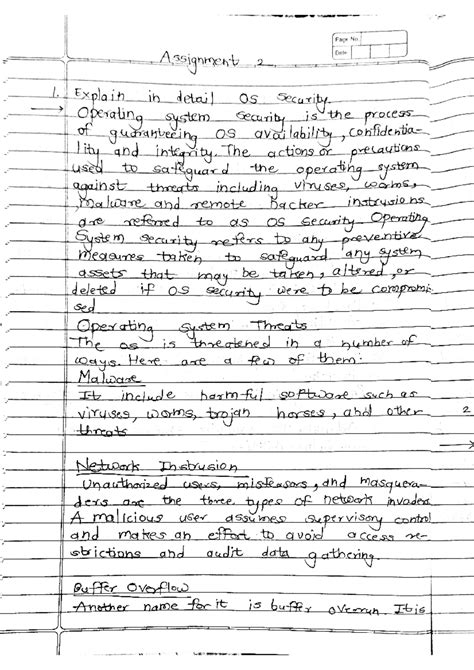 Page No.
Date
Assignment 2
1. Explain in detail OS Security.
→ Operating system security is the process
of guaranteeing OS availability, confidentia-
lity and integrity. The actions or precautions
used to safeguard the operating system
against threats including viruses, worms,
Malware and remote hacker instrusions
are referred to as OS Security. Operating
System security refers to any preventive
measures taken to safeguard any system
assets that may be taken, altered, or
deleted if OS security were to be comopromi
sed
Operating System Threats
The OS is threatened in a number of
ways. Here are a few of them:
Malware
It include harmful software such as
viruses, worms, trojan horses, and other
threats
2
Network Instrusion
Unauthorized users, misfeasors, and masquera-
ders are the three types of network invaders
A malicious user assumes supervisory control
and makes an effort to avoid access re-
strictions and audit data gathering.
Buffer Overflow
Another name for it is buffer overrun. It is